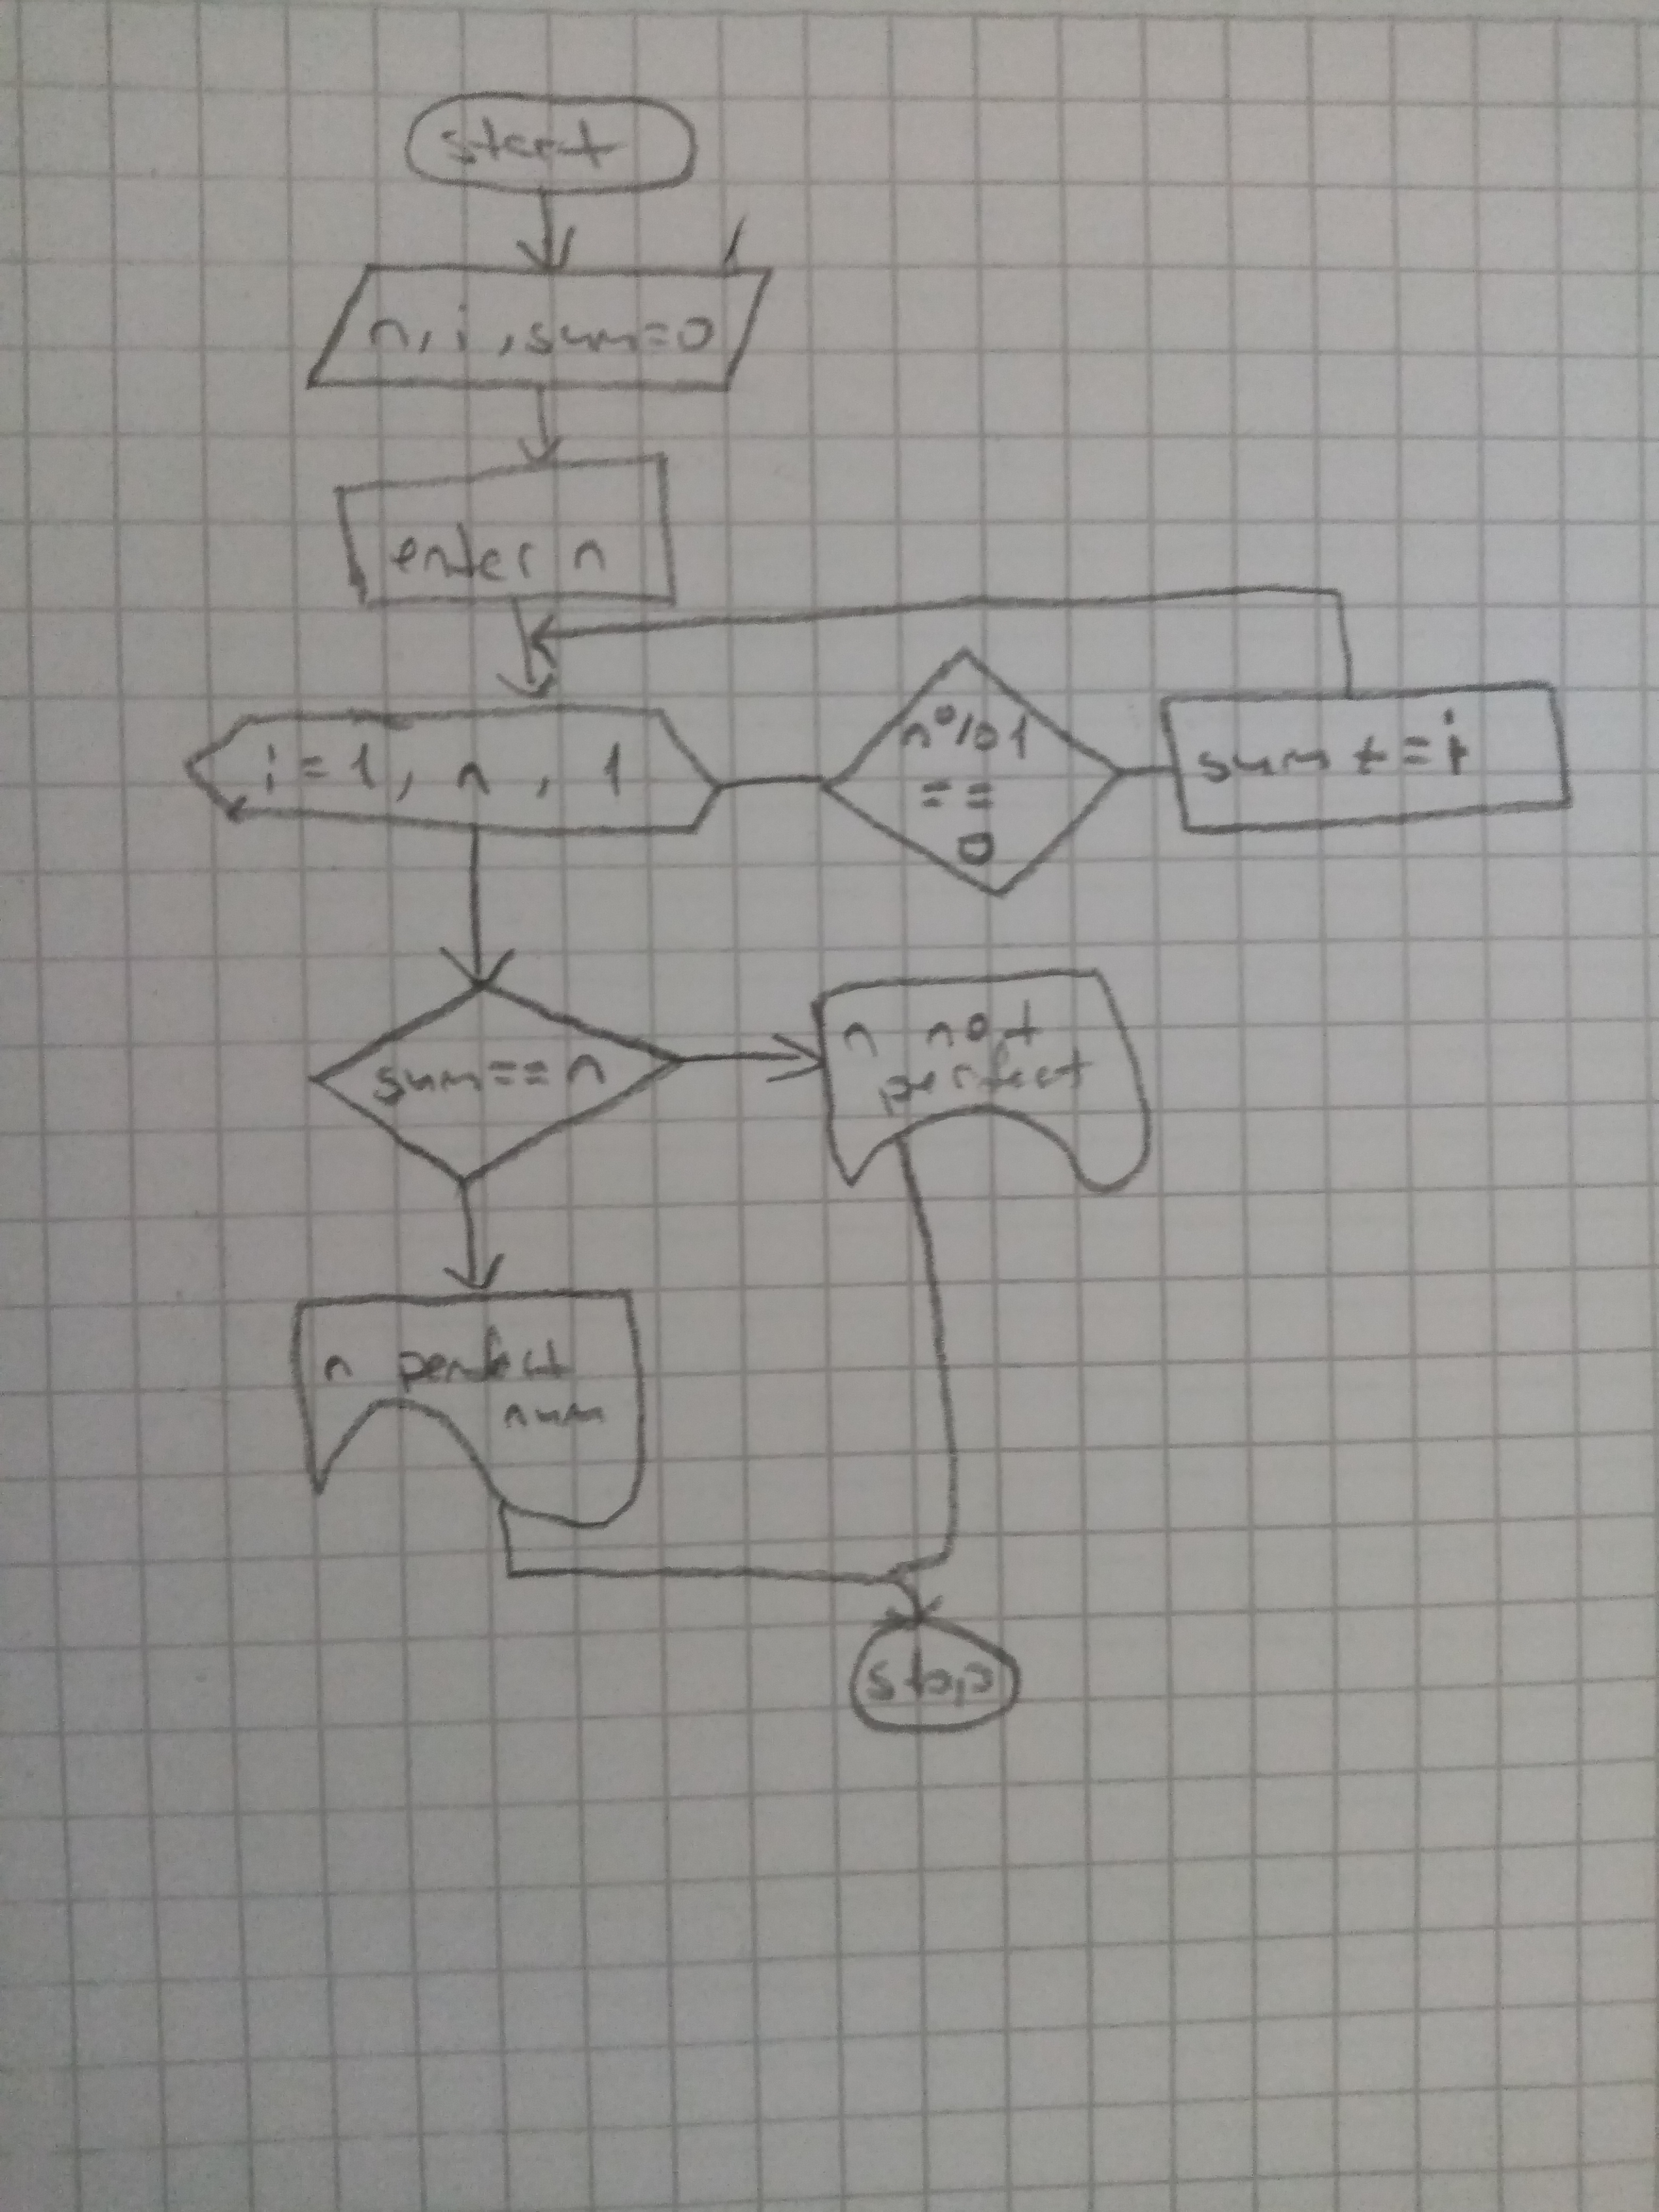 start
n, i, sum=0
enter n
i = 1, n, 1
n%1
==
0
sum + = i
sum == n
n not
perfect
n perfect
num
stop